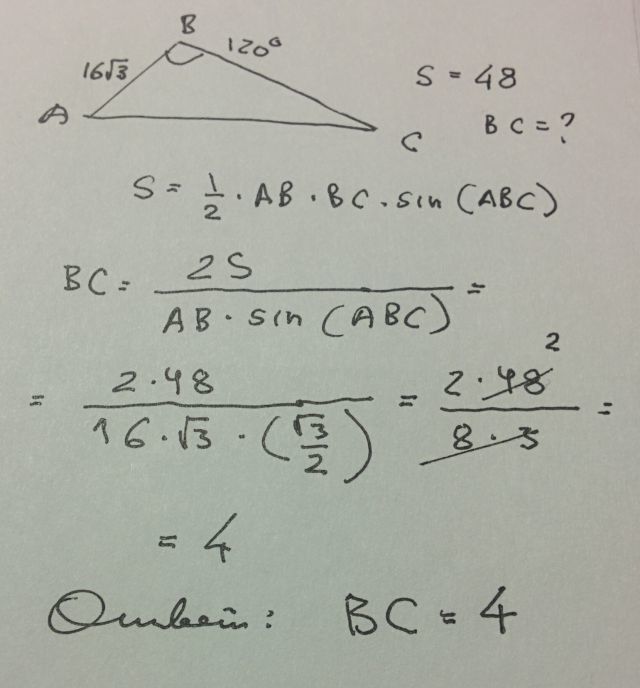 B
16√3 120°
A
C
S = 48
BC = ?
S = 1/2 · AB · BC · sin (ABC)
BC = 2S / (AB · sin (ABC)) =
= 2·48 / (16·√3·(√3/2)) = 2·48 / (8·3) =
2
= 4
Ответ: BC = 4